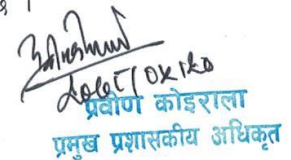 २०८१/०४/२०
प्रवीण कोइराला
प्रमुख प्रशासकीय अधिकृत